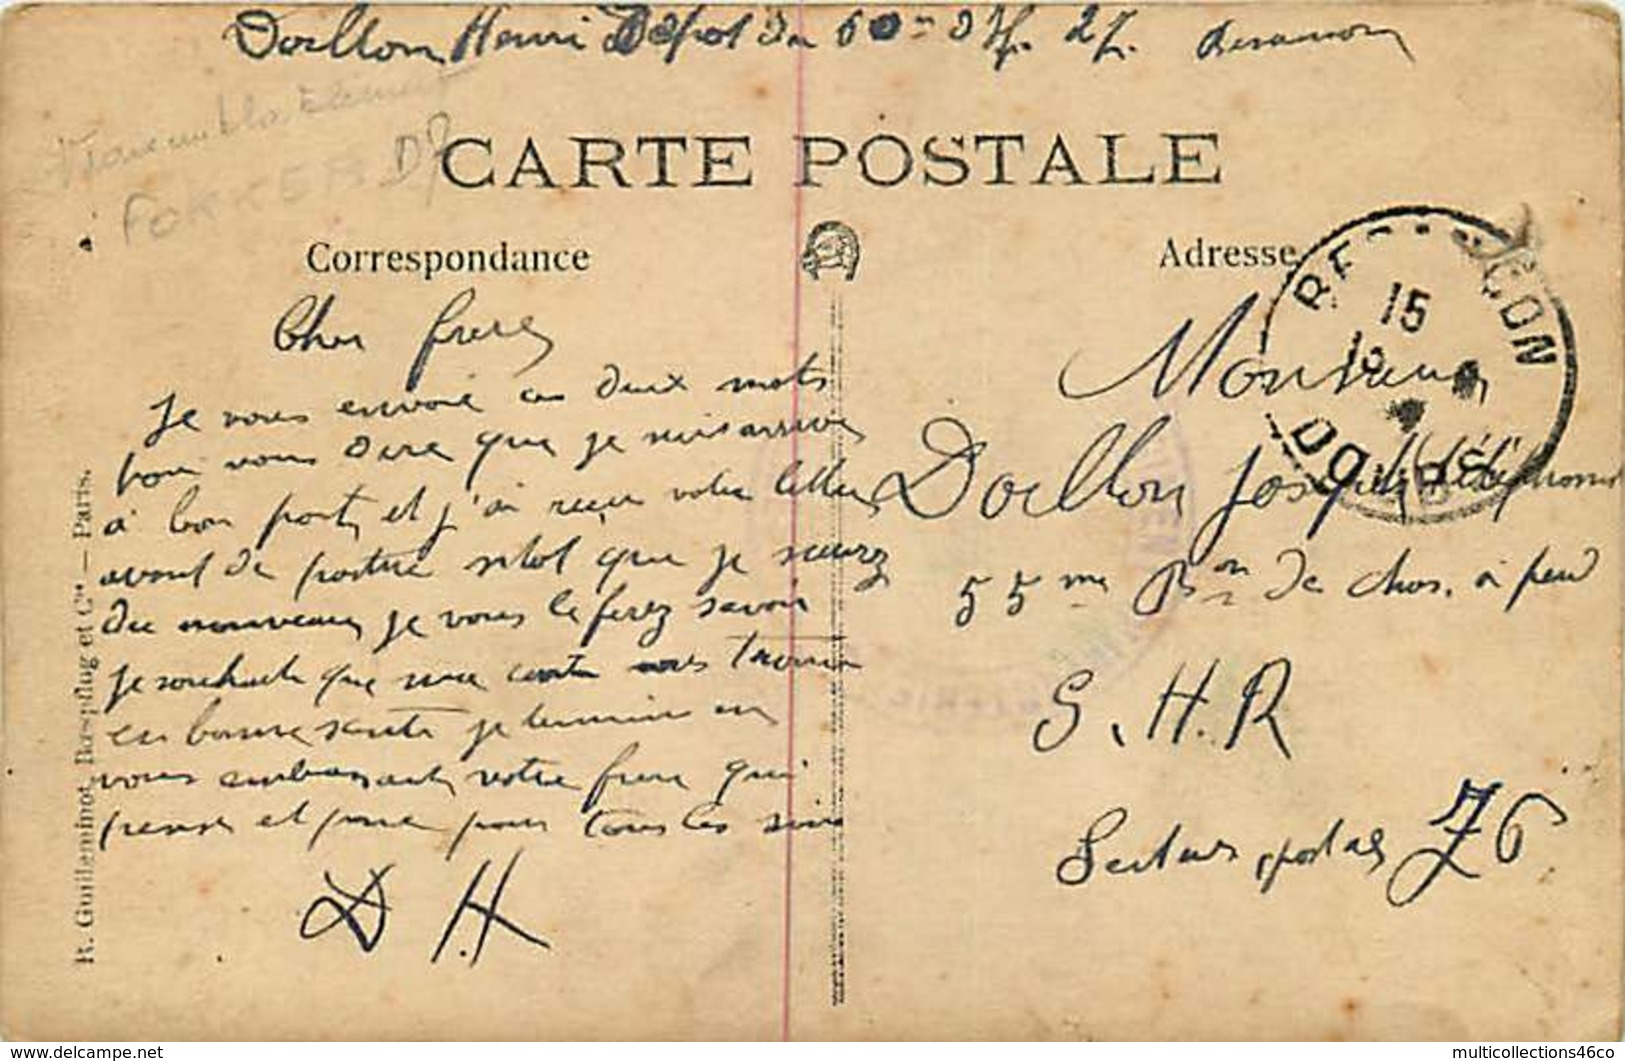 Doillon Henri Dépot du 60me d'If. 27. Besançon
Vraisemblablement
FOKKER D7
CARTE POSTALE
Correspondance
Adresse
BESANÇON
15
DOUBS
Cher frere
Je vous envoie ces deux mots
pour vous dire que je suis arrivé
à bon port, et j'ai reçu votre lettre
avant de partire sitot que je saurez
du nouveau je vous le ferez savoir
je souhaite que ma carte vous trouve
en bonne santé je termine en
vous embrassant votre frere qui
pense et prie pour tous les siens
D H
Monsieur
Doillon Joseph (téléphoniste
55me Bon de chas. à pied
S. H. R
Secteur postal 76
R. Guilleminot, Bœspflug et Cie. — Paris.
www.delcampe.net
multicollections46co